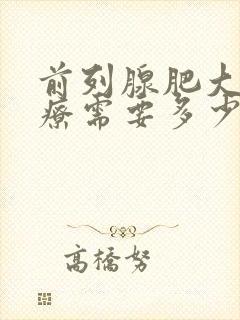 前列腺肥大
療需要多少
高橋努